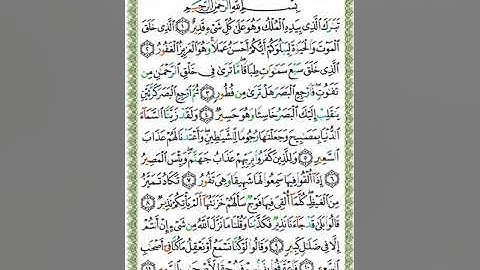 بِسْمِ اللَّهِ الرَّحْمَٰنِ الرَّحِيمِ
تَبَارَكَ الَّذِي بِيَدِهِ الْمُلْكُ وَهُوَ عَلَىٰ كُلِّ شَيْءٍ قَدِيرٌ ١ الَّذِي خَلَقَ
الْمَوْتَ وَالْحَيَاةَ لِيَبْلُوَكُمْ أَيُّكُمْ أَحْسَنُ عَمَلًا وَهُوَ الْعَزِيزُ الْغَفُورُ ٢
الَّذِي خَلَقَ سَبْعَ سَمَاوَاتٍ طِبَاقًا مَا تَرَىٰ فِي خَلْقِ الرَّحْمَٰنِ مِنْ
تَفَاوُتٍ فَارْجِعِ الْبَصَرَ هَلْ تَرَىٰ مِنْ فُطُورٍ ٣ ثُمَّ ارْجِعِ الْبَصَرَ كَرَّتَيْنِ
يَنْقَلِبْ إِلَيْكَ الْبَصَرُ خَاسِئًا وَهُوَ حَسِيرٌ ٤ وَلَقَدْ زَيَّنَّا السَّمَاءَ
الدُّنْيَا بِمَصَابِيحَ وَجَعَلْنَاهَا رُجُومًا لِلشَّيَاطِينِ وَأَعْتَدْنَا لَهُمْ عَذَابَ
السَّعِيرِ ٥ وَلِلَّذِينَ كَفَرُوا بِرَبِّهِمْ عَذَابُ جَهَنَّمَ وَبِئْسَ الْمَصِيرُ
٦ إِذَا أُلْقُوا فِيهَا سَمِعُوا لَهَا شَهِيقًا وَهِيَ تَفُورُ ٧ تَكَادُ تَمَيَّزُ
مِنَ الْغَيْظِ كُلَّمَا أُلْقِيَ فِيهَا فَوْجٌ سَأَلَهُمْ خَزَنَتُهَا أَلَمْ يَأْتِكُمْ نَذِيرٌ ٨
قَالُوا بَلَىٰ قَدْ جَاءَنَا نَذِيرٌ فَكَذَّبْنَا وَقُلْنَا مَا نَزَّلَ اللَّهُ مِنْ شَيْءٍ إِنْ أَنْتُمْ
إِلَّا فِي ضَلَالٍ كَبِيرٍ ٩ وَقَالُوا لَوْ كُنَّا نَسْمَعُ أَوْ نَعْقِلُ مَا كُنَّا فِي أَصْحَابِ